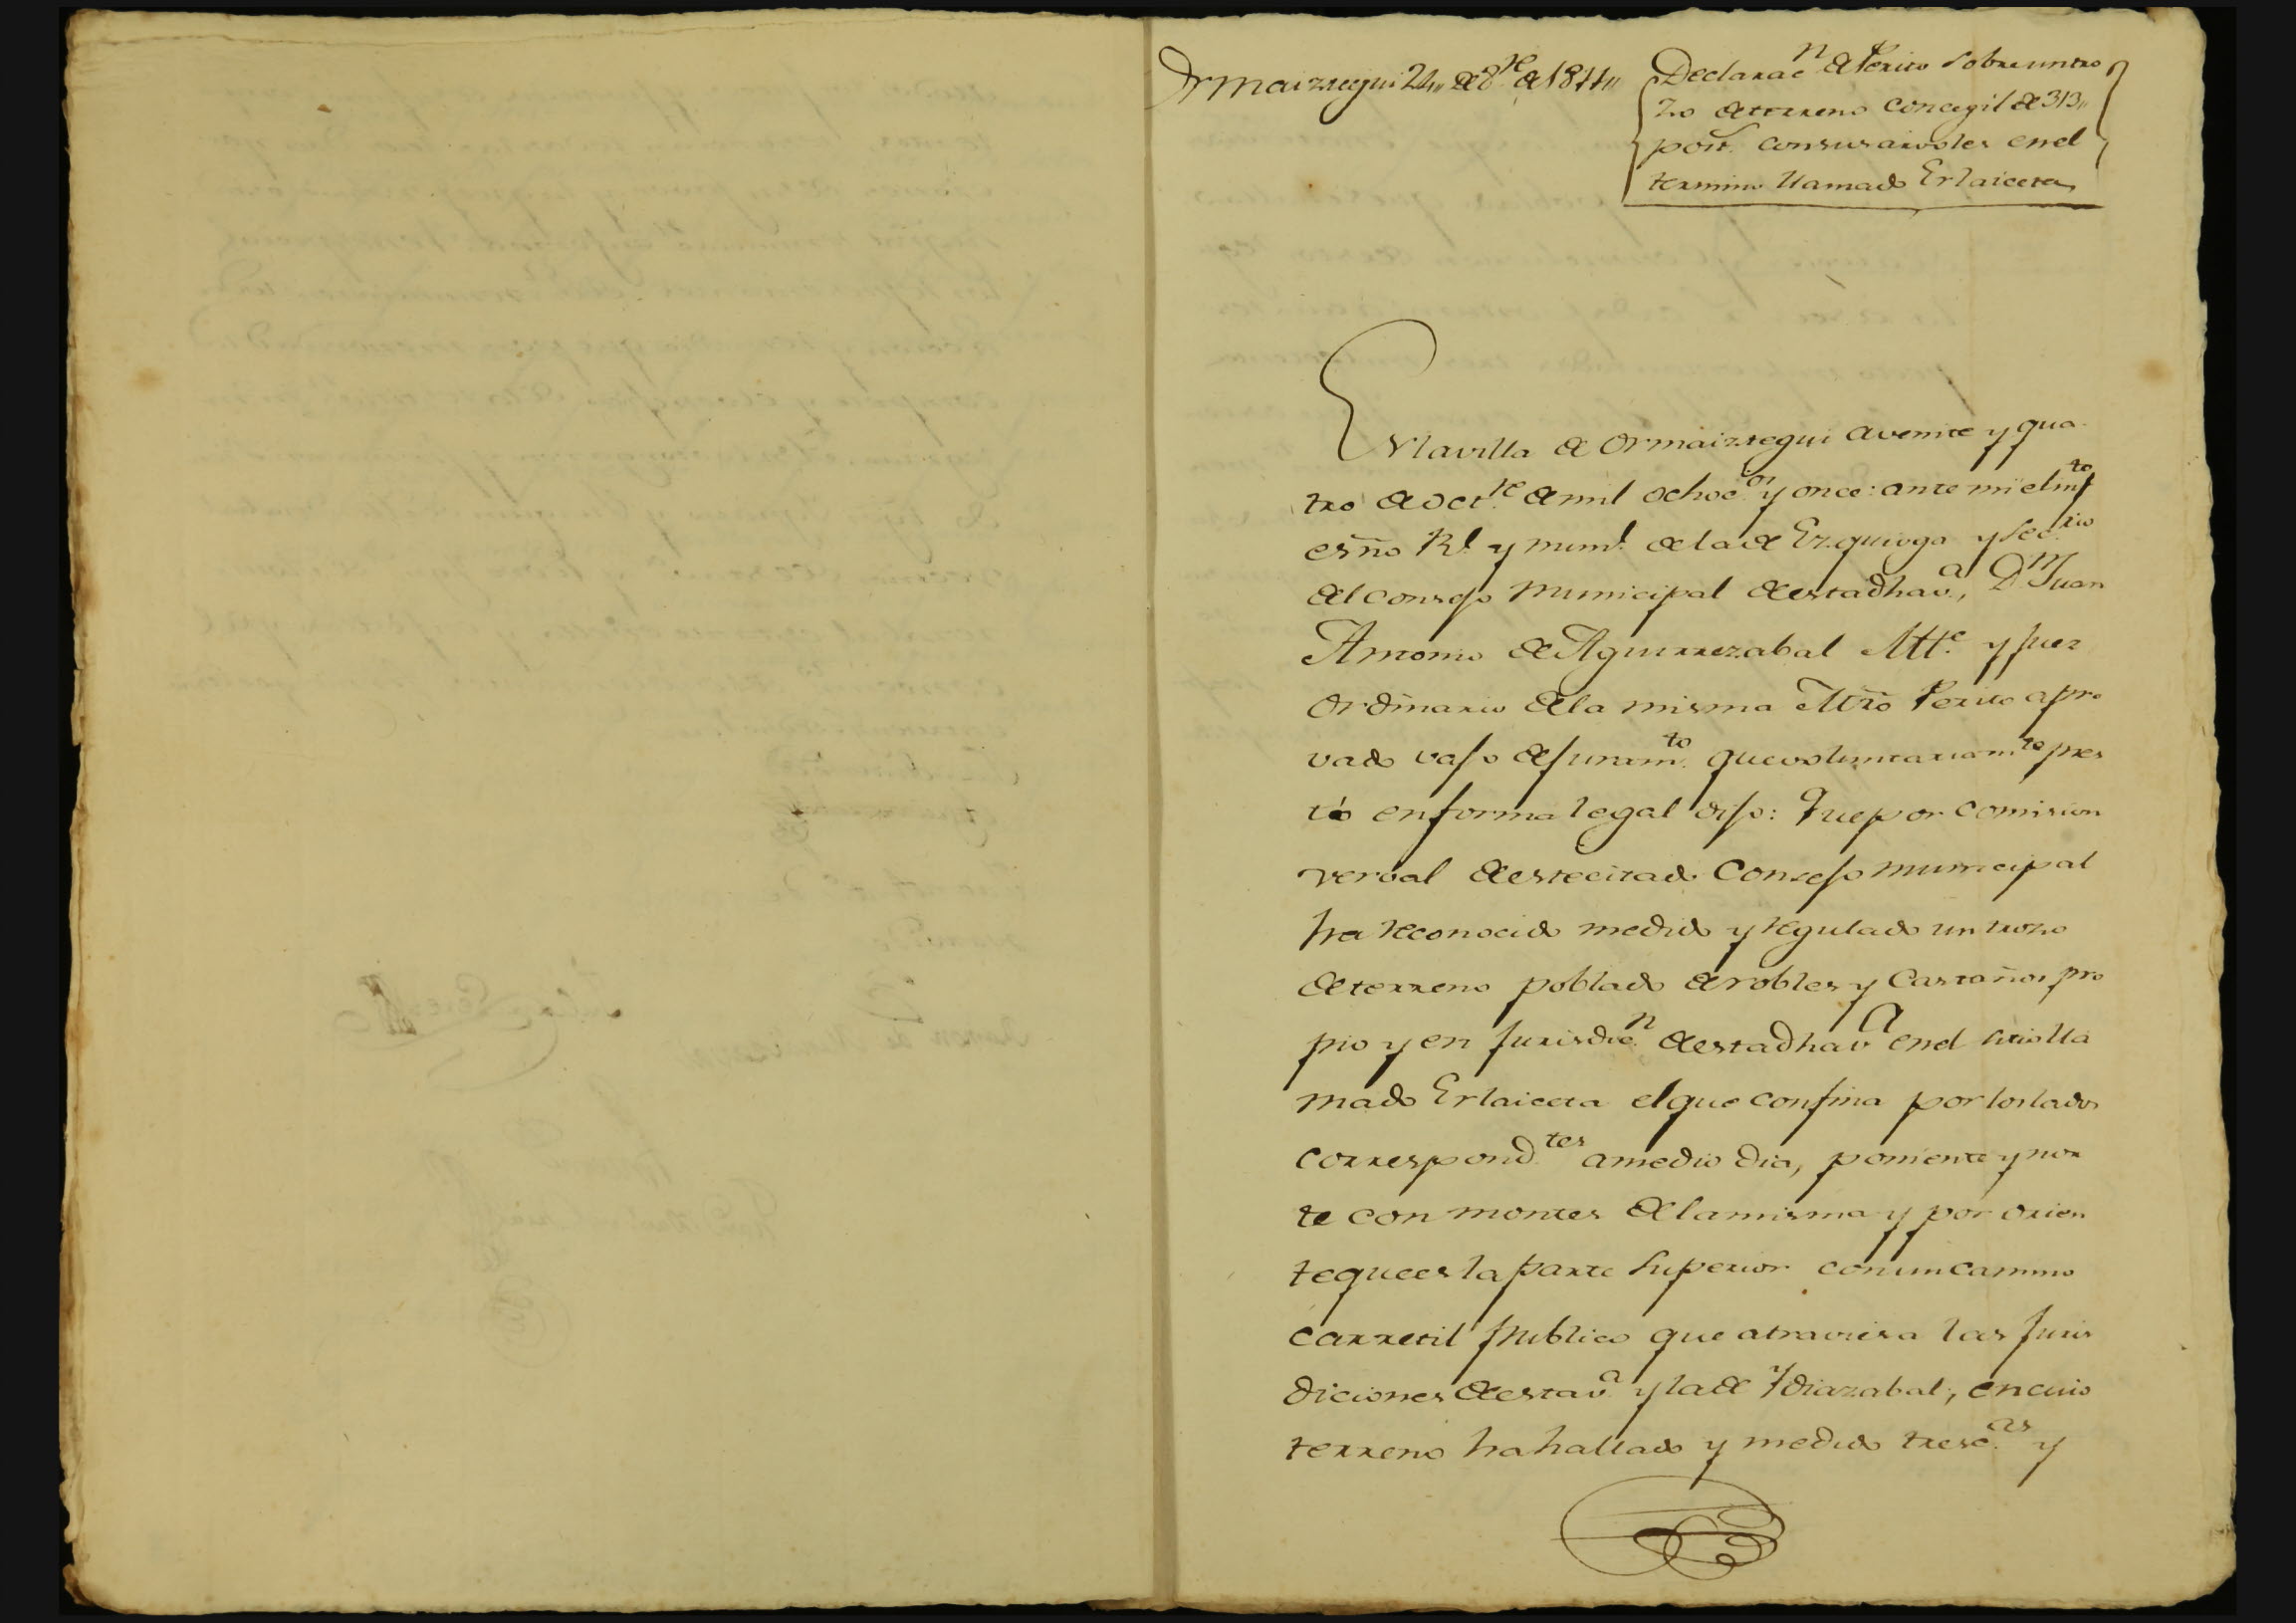 Ormaiztegui 24,, de 8re de 1811,,
Declaracn de Perito sobre un tro
zo de terreno concegil de 313,,
post. con sus arvoles en el
termino llamado Erlaiceta
En la villa de Ormaiztegui a veinte y qua
tro de Octre de mil ochocos y once: ante mi el infto
esño Rl. y numl. de la de Ezquioga y secrio
del consejo municipal de esta dha va, Dn Juan
Antonio de Aguirrezabal Alte. y Juez
ordinario de la misma Mro Perito apro
vado vajo de juramto que voluntariamte pres
tó en forma legal dijo: Que por comision
verval de este citado Consejo municipal
ha reconocido medido y regulado un trozo
de terreno poblado de robles y Castaños pro
pio y en Jurisdicn de esta dha va en el sitio lla
mado Erlaiceta el que confina por los lados
correspondtes a medio dia, poniente y nor
te con montes de la misma y por orien
te que es la parte superior con un camino
carretil publico que atraviesa las Juris
diciones de esta va y la de Ydiazabal, en cuio
terreno ha hallado y medido trescas y